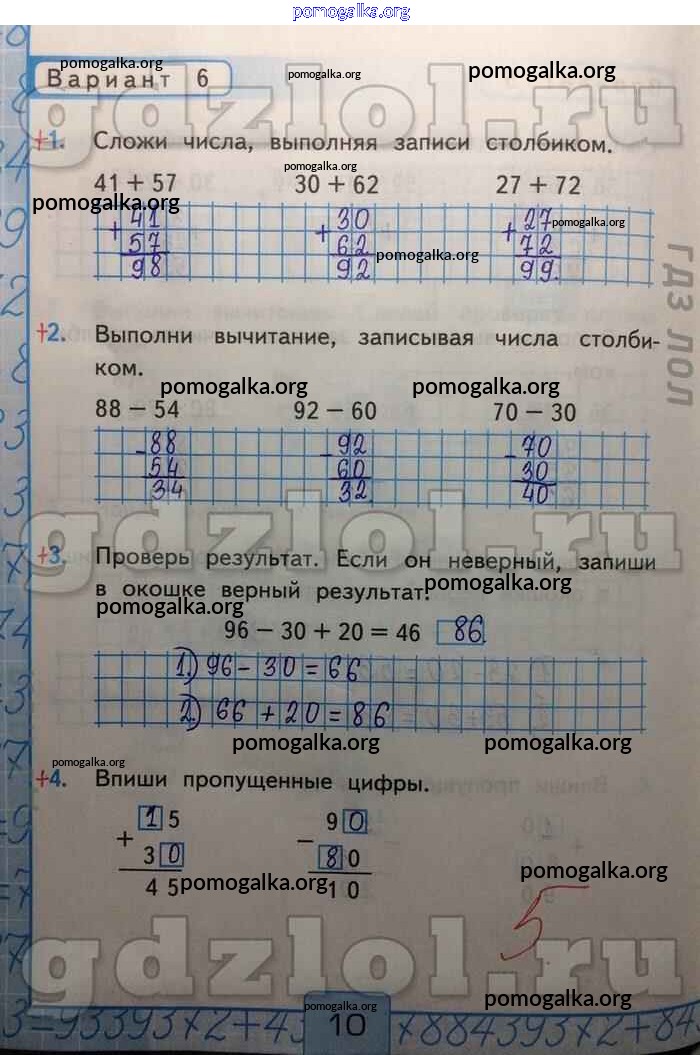 pomogalka.org
Вариант 6
pomogalka.org
pomogalka.org
pomogalka.org
gdzlol.ru
+1. Сложи числа, выполняя записи столбиком.
pomogalka.org
41 + 57 30 + 62 27 + 72
pomogalka.org
+ 41 + 30 + 27
pomogalka.org
57 62 72
98 92 99.
pomogalka.org
гдз лол
+2. Выполни вычитание, записывая числа столби-
ком.
pomogalka.org pomogalka.org
88 − 54 92 − 60 70 − 30
- 88 - 92 - 70
54 60 30
34 32 40
gdzlol.ru
+3. Проверь результат. Если он неверный, запиши
в окошке верный результат.
pomogalka.org
pomogalka.org
96 − 30 + 20 = 46 86
1.) 96 - 30 = 66
2.) 66 + 20 = 86
pomogalka.org pomogalka.org
pomogalka.org
+4. Впиши пропущенные цифры.
1 5 9 0
+ −
3 0 8 0
4 5 1 0
pomogalka.org
pomogalka.org
5
gdzlol.ru
pomogalka.org
pomogalka.org
3=93393×2+43 10 ×884393×2+84